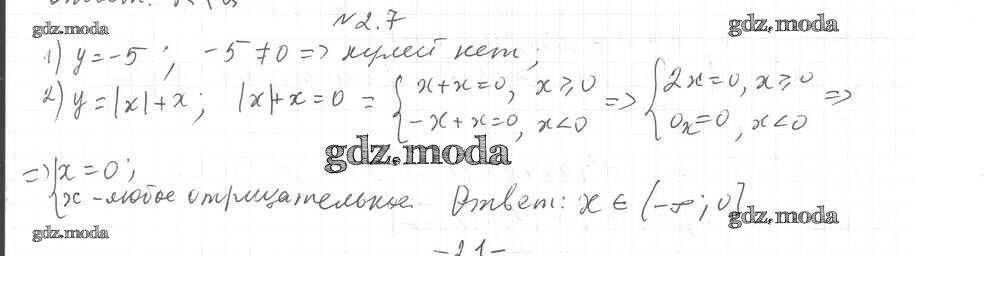 №2.7
gdz.moda gdz.moda
1) y=-5; -5≠0 => нулей нет;
2) y=|x|+x; |x|+x=0 = { x+x=0, x≥0 => { 2x=0, x≥0 =>
-x+x=0, x<0 0x=0, x<0
gdz.moda
=> { x=0;
x - любое отрицательное. Ответ: x ∈ (-∞; 0]
gdz.moda gdz.moda
-21-